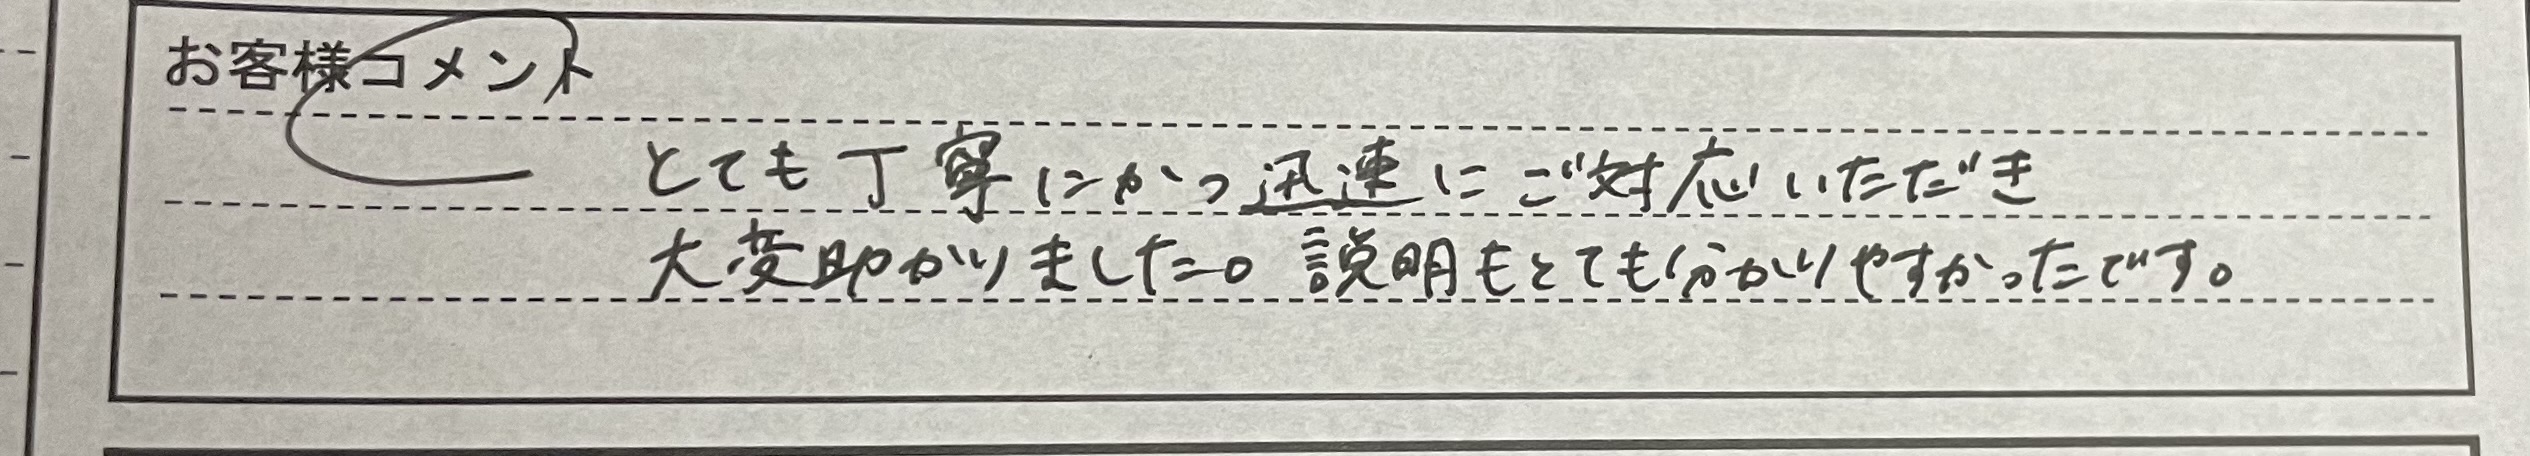 お客様コメント
とても丁寧にかつ迅速にご対応いただき
大変助かりました。説明もとても分かりやすかったです。